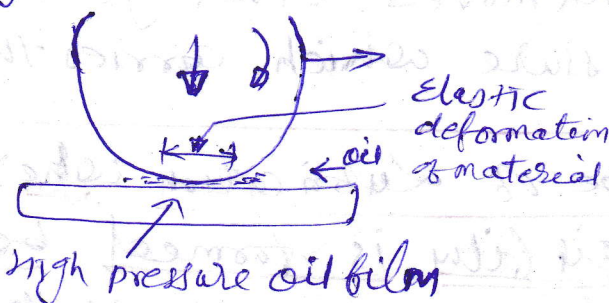 Elastic
deformation
of material
oil
High pressure oil film